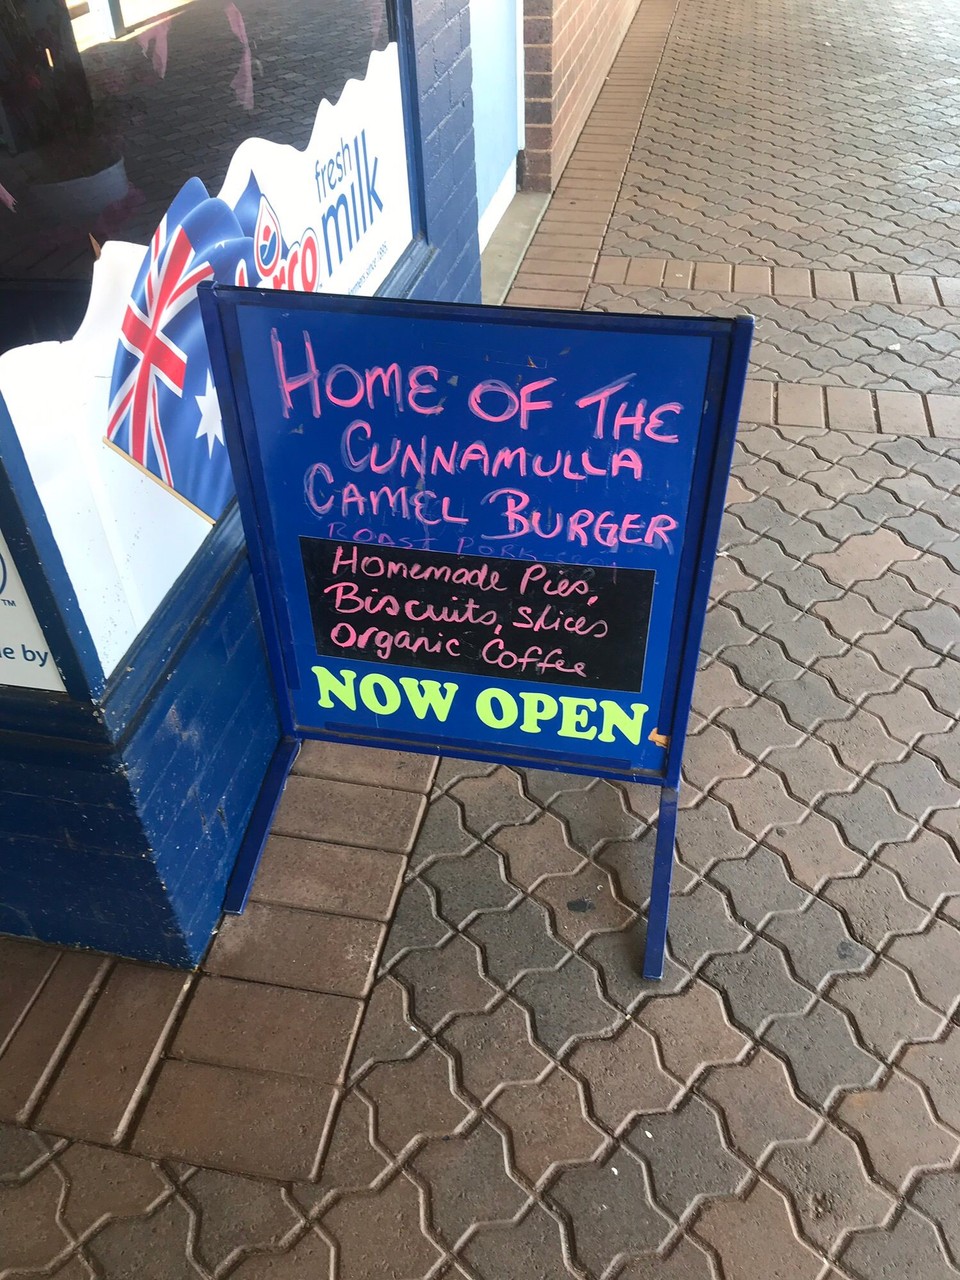 fresh
milk
farmers since 1895
HOME OF THE
CUNNAMULLA
CAMEL BURGER
ROAST PORK
Homemade Pies,
Biscuits, Slices
Organic Coffee
NOW OPEN
TM
e by